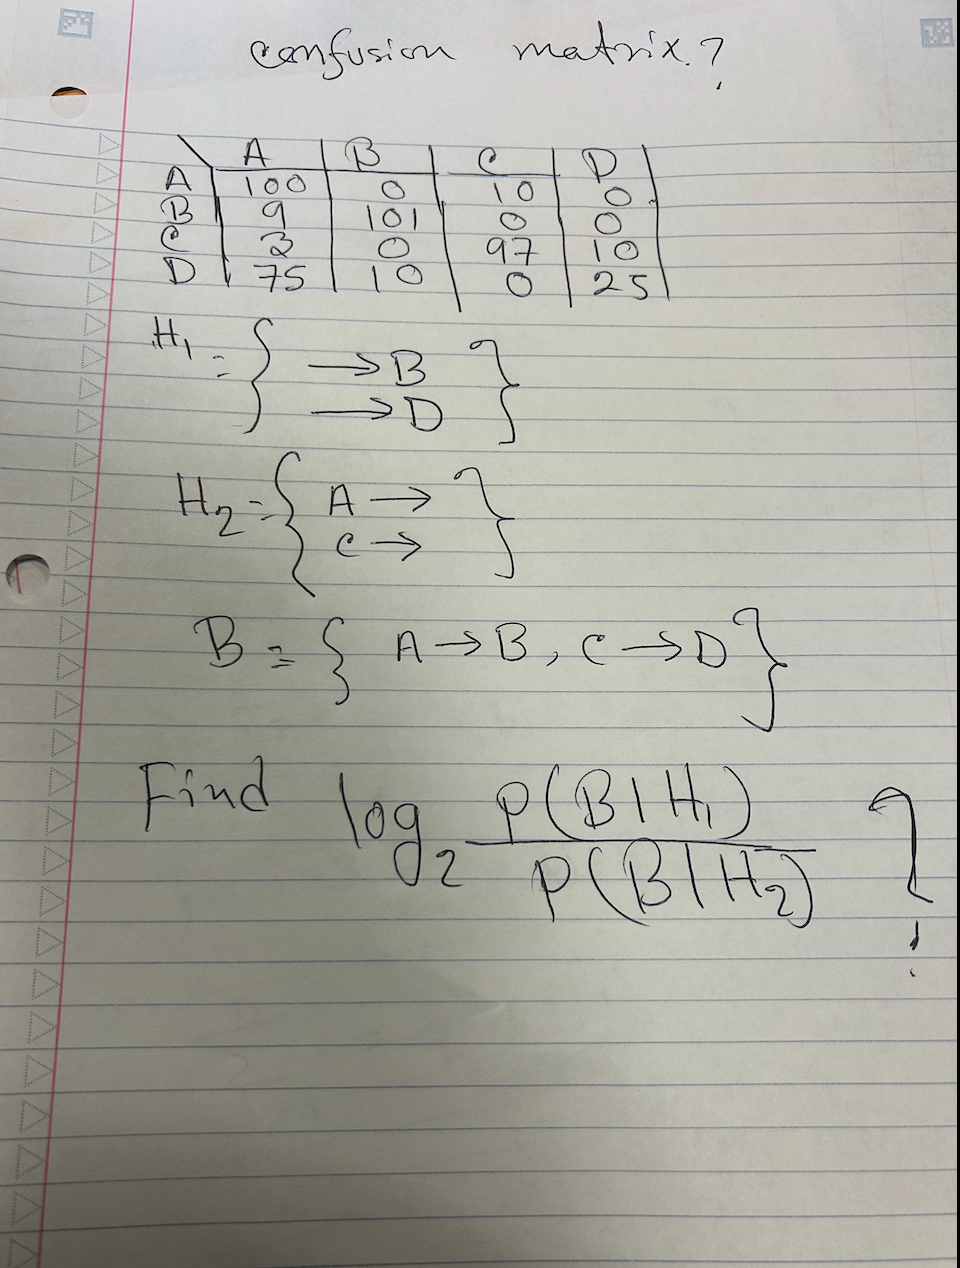 confusion matrix?
A B C D
A 100 0 10 0
B 9 101 0 0
C 3 0 97 10
D 75 10 0 25
H₁ = { → B
→ D }
H₂ = { A →
C → }
B = { A → B, C → D }
Find log₂ P(B|H₁) / P(B|H₂) ?